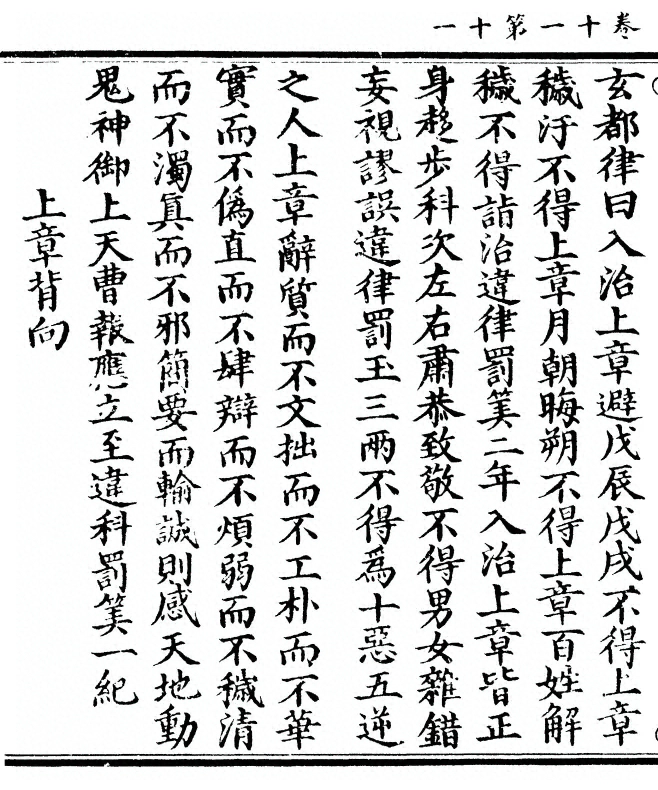 卷十一第十一
玄都律曰入治上章避戊辰戊戌不得上章
穢汙不得上章月朝晦朔不得上章百姓解
穢不得詣治違律罰筭二年入治上章皆正
身移步科次左右肅恭致敬不得男女雜錯
妄視謬誤違律罰玉三兩不得爲十惡五逆
之人上章辭質而不文拙而不工朴而不華
實而不僞直而不肆辯而不煩弱而不穢清
而不濁眞而不邪簡要而輸誠則感天地動
鬼神御上天曹報應立至違科罰筭一紀
上章背向